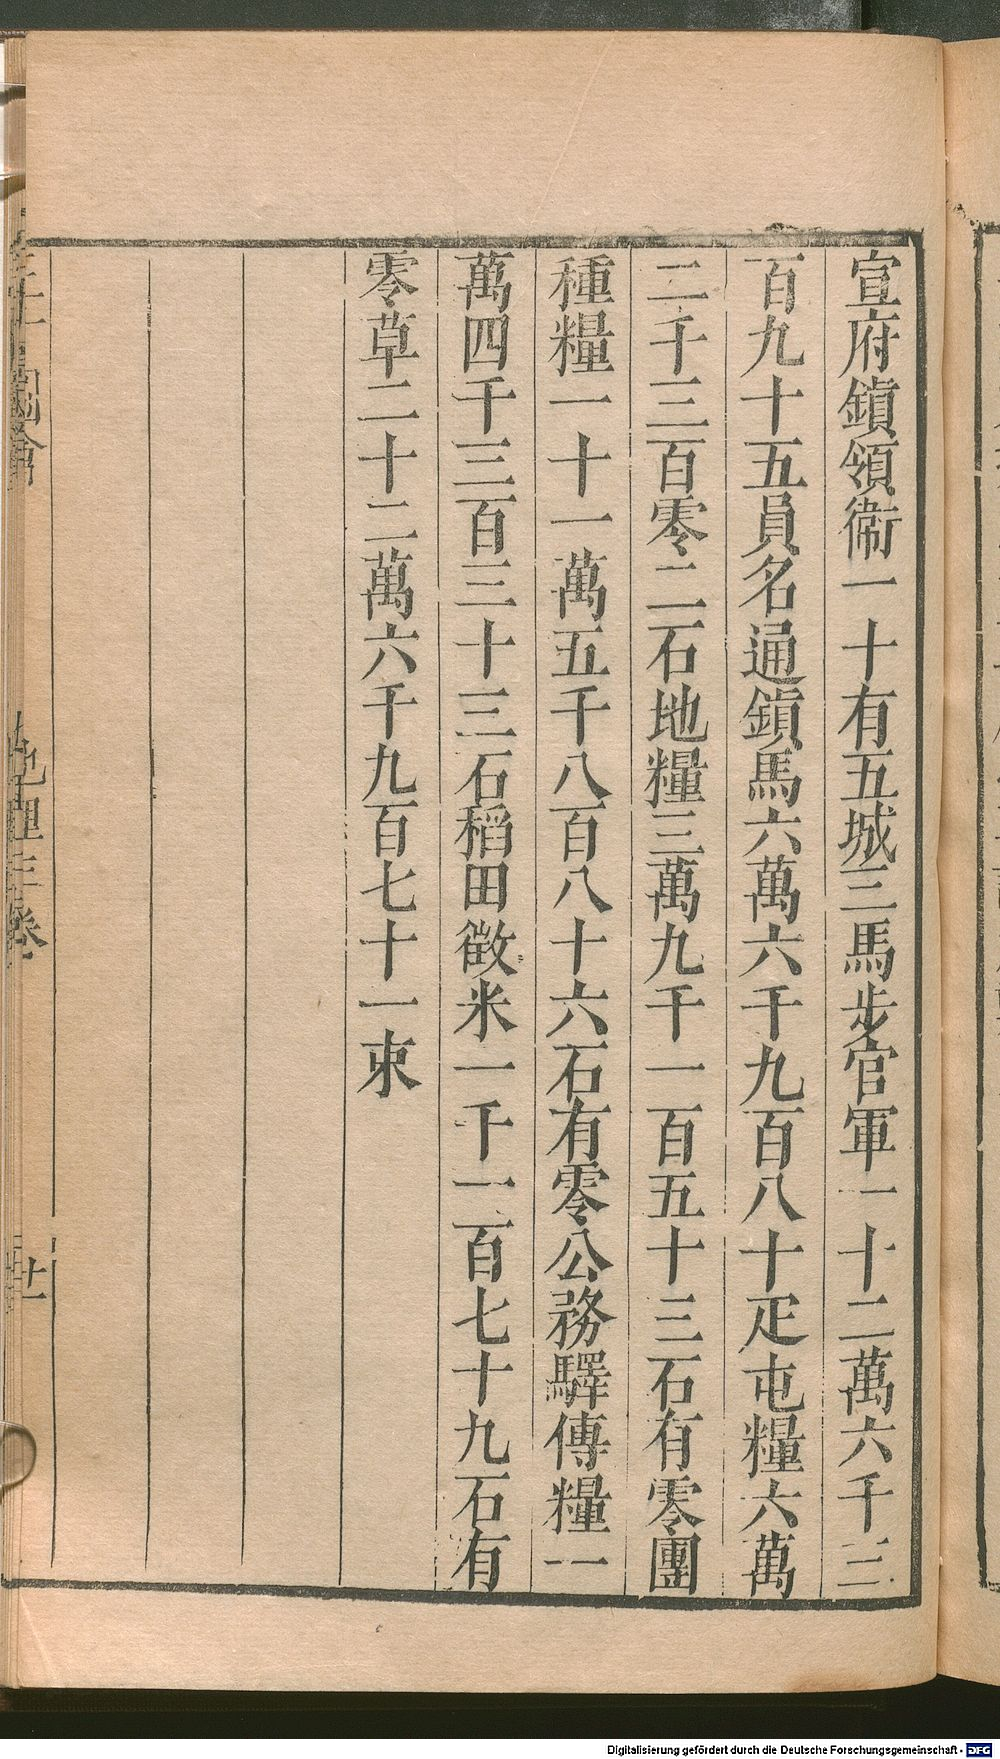 宣府鎮領衞一十有五城三馬步官軍一十二萬六千三
百九十五員名通鎮馬六萬六千九百八十疋屯糧六萬
二千三百零二石地糧三萬九千一百五十三石有零團
種糧一十一萬五千八百八十六石有零公務驛傳糧一
萬四千三百三十三石稻田徵米一千一百七十九石有
零草二十二萬六千九百七十一束
地理三卷
廿
Digitalisierung gefördert durch die Deutsche Forschungsgemeinschaft - DFG